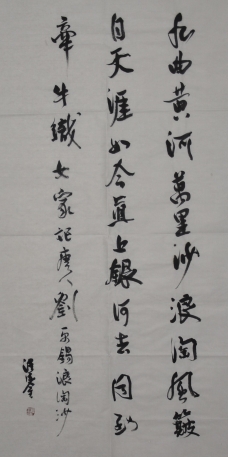 九曲黄河萬里沙浪淘風簸
自天涯如今直上銀河去同到
牽牛織女家記唐人劉
禹錫浪淘沙